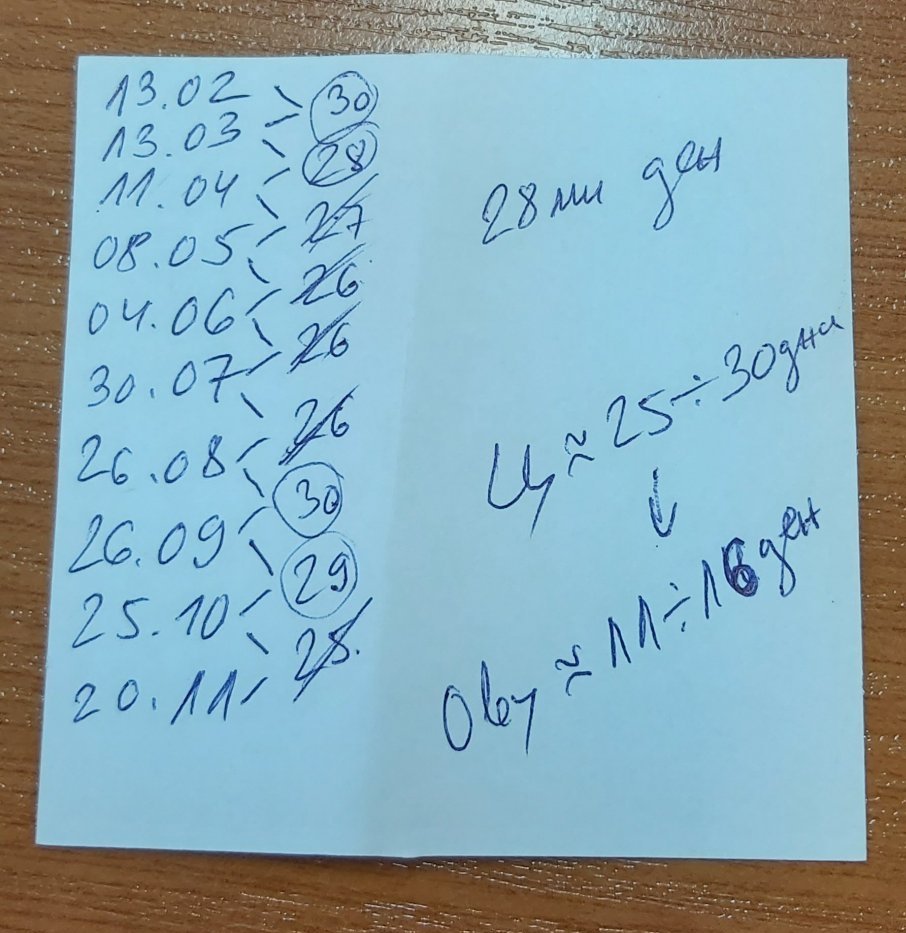 13.02
30
13.03
28
11.04
27
08.05
26
04.06
26
30.07
26
26.08
30
26.09
29
25.10
25
20.11
28ми ден
Ц ≈ 25÷30 дни
↓
Овц ≈ 11÷16 ден